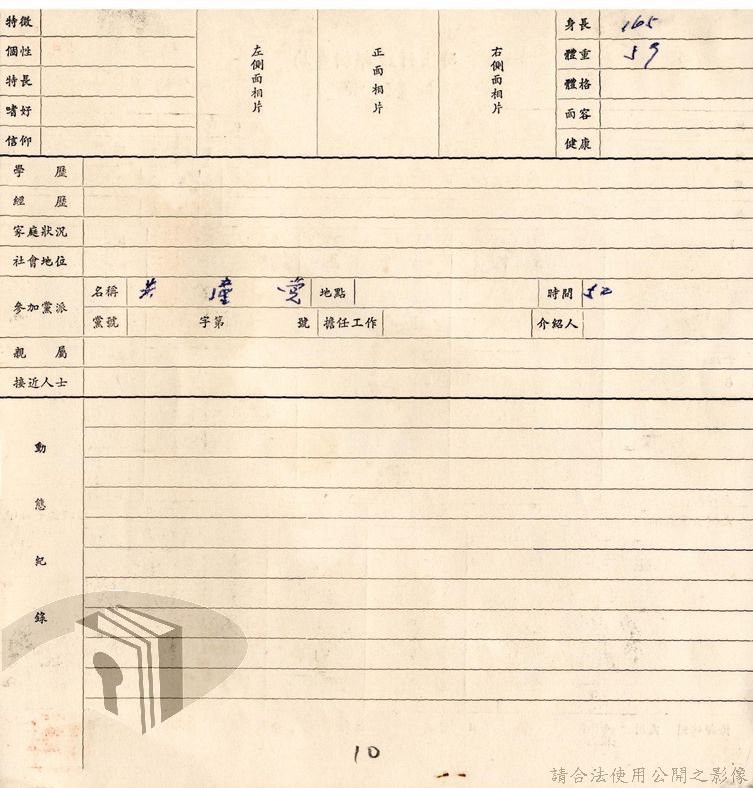 特徵
個性
特長
嗜好
信仰
左側面相片
正面相片
右側面相片
身長 165
體重 59
體格
面容
健康
學歷
經歷
家庭狀況
社會地位
參加黨派
名稱 共產党 地點 時間 52
黨號 字第 號 擔任工作 介紹人
親屬
接近人士
動態紀錄
10
請合法使用公開之影像